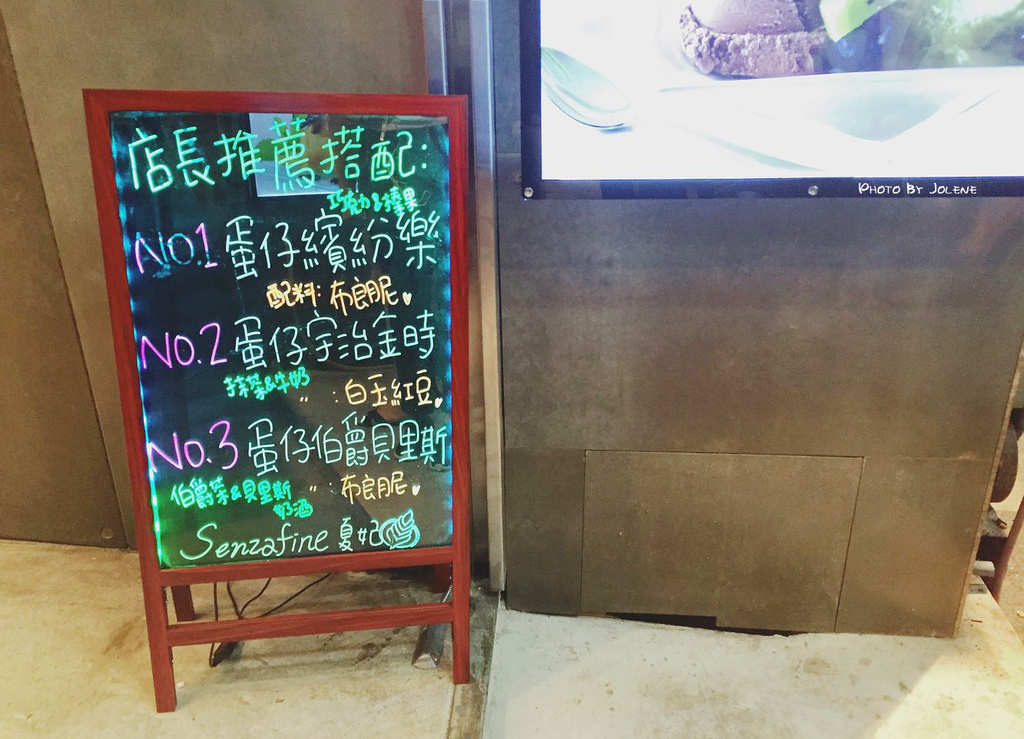 店長推薦搭配:
巧克力&榛果
NO.1 蛋仔繽紛樂
配料: 布朗尼
NO.2 蛋仔宇治金時
抹茶&牛奶
〃 : 白玉紅豆
No.3 蛋仔伯爵貝里斯
伯爵茶&貝里斯
奶酒
〃 : 布朗尼
Senzafine 夏妃
PHOTO BY JOLENE